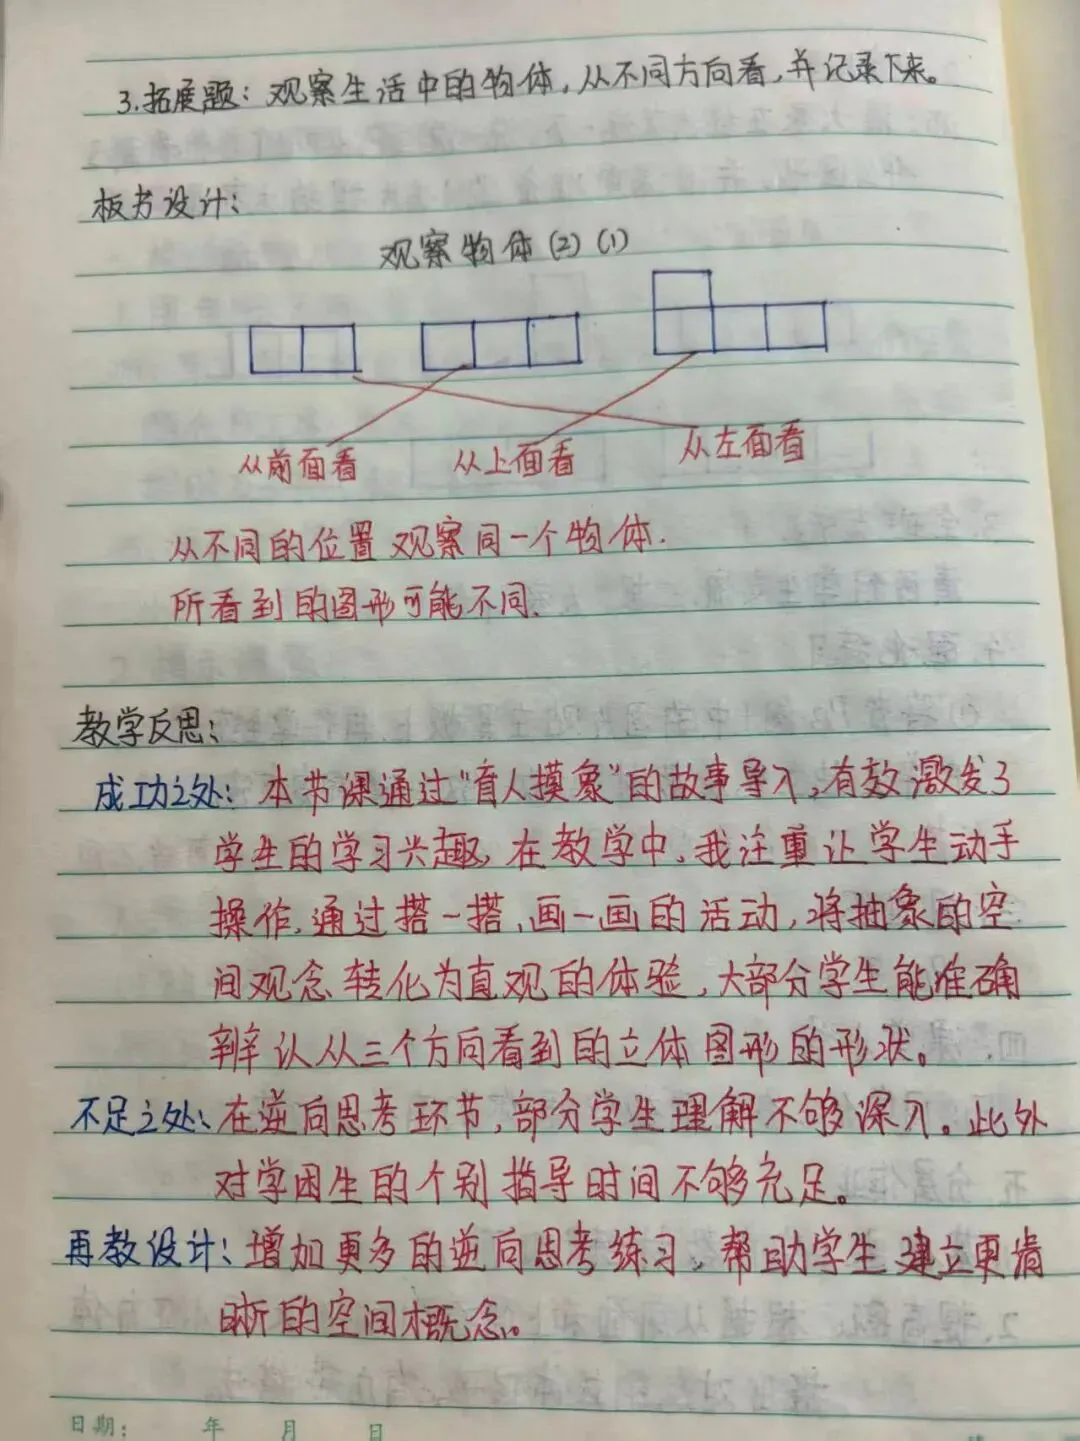 3.拓展题：观察生活中的物体，从不同方向看，并记录下来。
板书设计：
观察物体(2)(1)
从前面看 从上面看 从左面看
从不同的位置观察同一个物体.
所看到的图形可能不同.
教学反思：
成功之处：本节课通过“盲人摸象”的故事导入，有效激发了
学生的学习兴趣，在教学中，我注重让学生动手
操作，通过搭一搭，画一画的活动，将抽象的空
间观念转化为直观的体验，大部分学生能准确
辨认从三个方向看到的立体图形的形状。
不足之处：在逆向思考环节，部分学生理解不够深入。此外
对学困生的个别指导时间不够充足。
再教设计：增加更多的逆向思考练习，帮助学生建立更清
晰的空间概念。
日期： 年 月 日